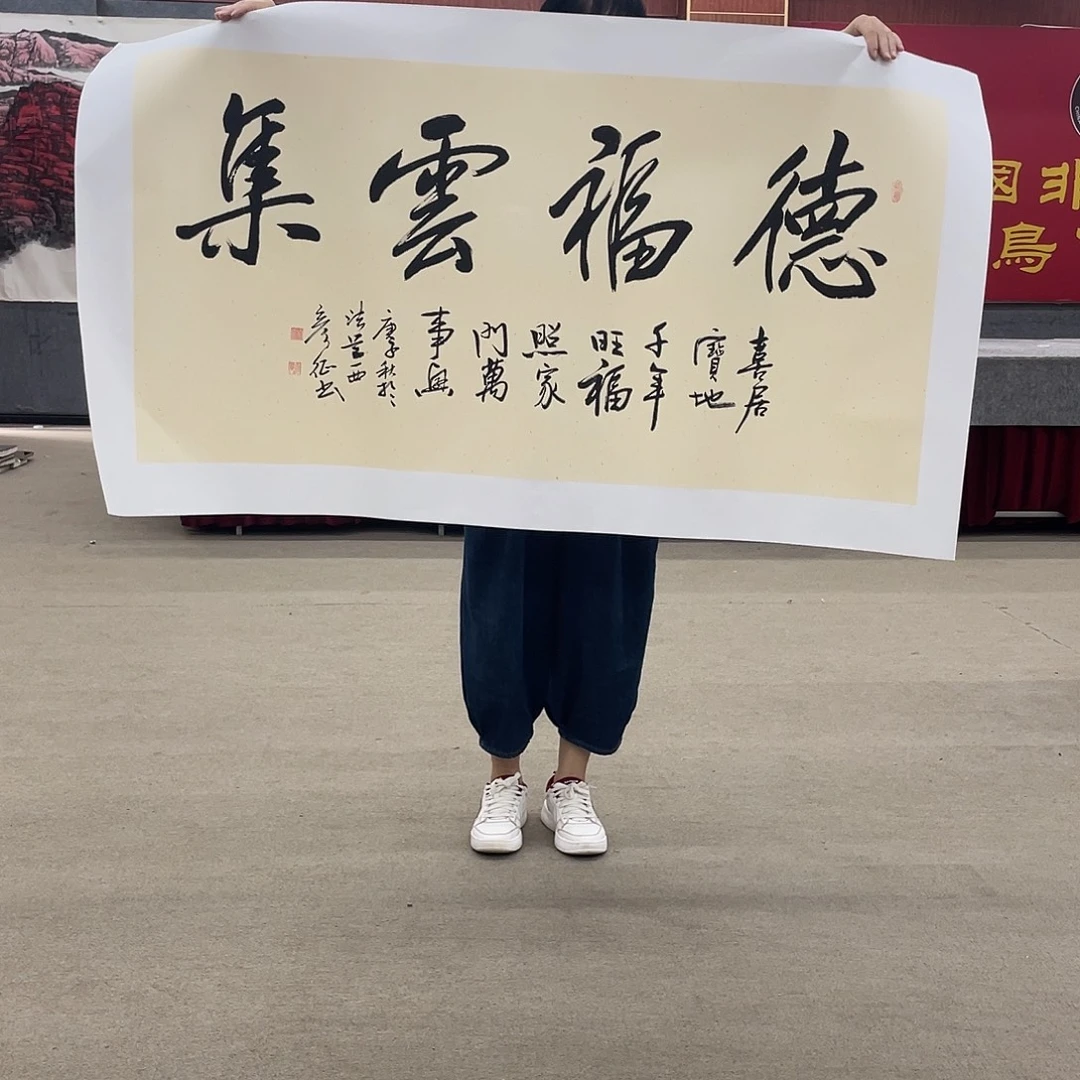 德福雲集
喜居
寶地
千年
旺福
照家
門萬
事興
庚子秋於
法蘭西
彥征书
国非
鳥